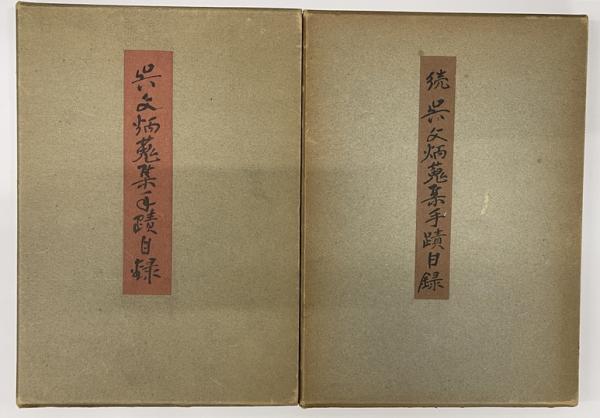 呉文炳蒐集手蹟目録
続 呉文炳蒐集手蹟目録